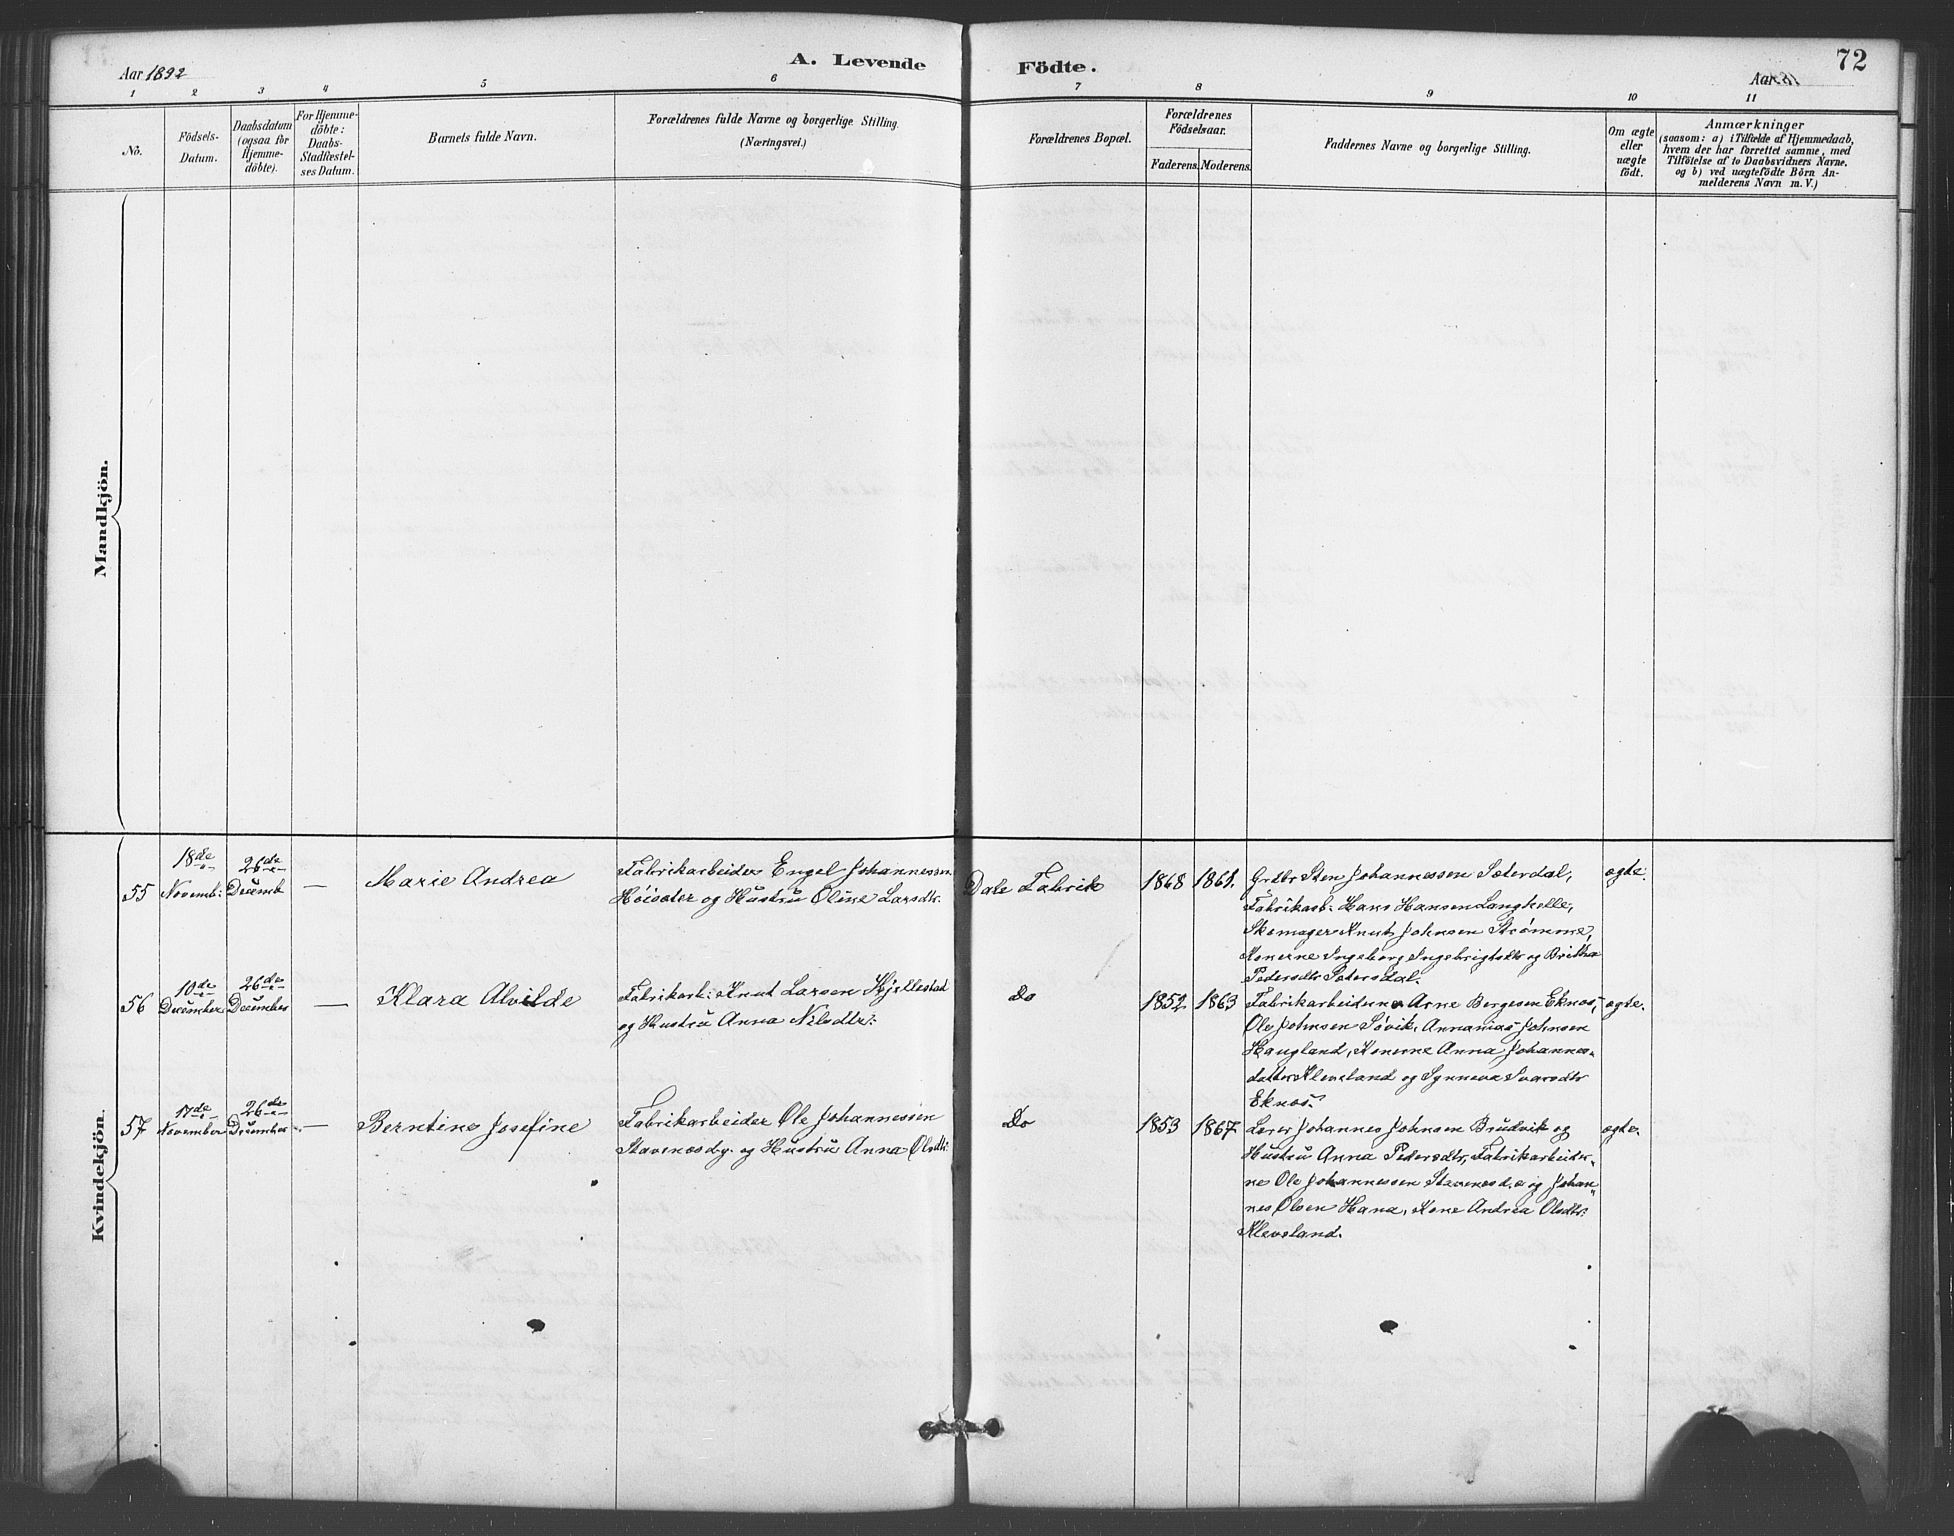 Aar 1892
A. Levende Födte.
72
Aar
1 2 3 4 5 6 7 8 9 10 11
No.
Födsels-
Datum.
Daabsdatum
(ogsaa for
Hjemme-
döbte).
For Hjemme-
döbte:
Daabs-
Stadfestel-
ses Datum.
Barnets fulde Navn.
Forældrenes fulde Navne og borgerlige Stilling.
(Næringsvei.)
Forældrenes Bopæl.
Forældrenes
Födselsaar.
Faderens. Moderens.
Faddernes Navne og borgerlige Stilling.
Om ægte
eller
uægte
födt.
Anmærkninger
(saasom: a) i Tilfælde af Hjemmedaab,
hvem der har forrettet samme, med
Tilföielse af to Daabsvidners Navne.
og b) ved uægtefödte Börn An-
melderens Navn m. V.)
Mandkjön.
Kvindekjön.
55
18de
Novemb:
26de
Decemb
—
Marie Andrea
Fabrikarbeider Engel Johannessen
Höisæter og Hustru Oline Larsdtr.
Dale Fabrik
1868 1861.
Grdbr Sten Johannessen Sæterdal,
Fabrikarb. Hans Hansen Langhelle,
Skomager Knut Johnsen Strømme,
Konerne Ingeborg Ingebrigtsdtr og Britha
Pedersdtr Sætersdal.
ægte.
56
10de
December
26de
December
—
Klara Alvilde
Fabrikarb: Knut Larsen Hjellestad
og Hustru Anna Nilsdtr:
Do
1852 1863
Fabrikarbeiderne Arne Bergesen Eknos,
Ole Johnsen Søvik, Annanias Johnsen
Haugland, Konerne Anna Johannes-
datter Kleveland og Synneva Ivarsdtr
Eknos.
ægte.
57
17de
November
26de
December
—
Berntine Josefine
Fabrikarbeider Ole Johannessen
Stavenesdy. og Hustru Anna Olsdtr:
Do
1853 1867
Lærer Johannes Johnsen Brudvik og
Hustru Anna Pedersdtr, Fabrikarbeider-
ne Ole Johannessen Stavenesd. og Johan-
nes Olsen Hana, Kone Andrea Olsdtr:
Kleveland.
ægte.